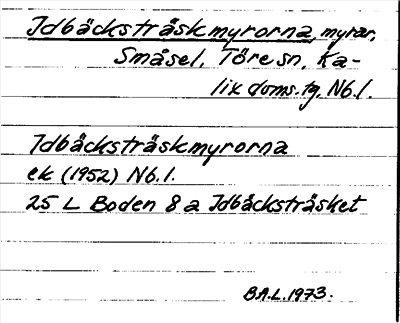 Idbäcksträskmyrorna, myrar,
Småsel, Töre sn, Ka-
lix doms.tg, Nb.l.
Idbäcksträskmyrorna
ek (1952) Nb.l.
25 L Boden 8 a Idbäcksträsket
B.A.L. 1973.